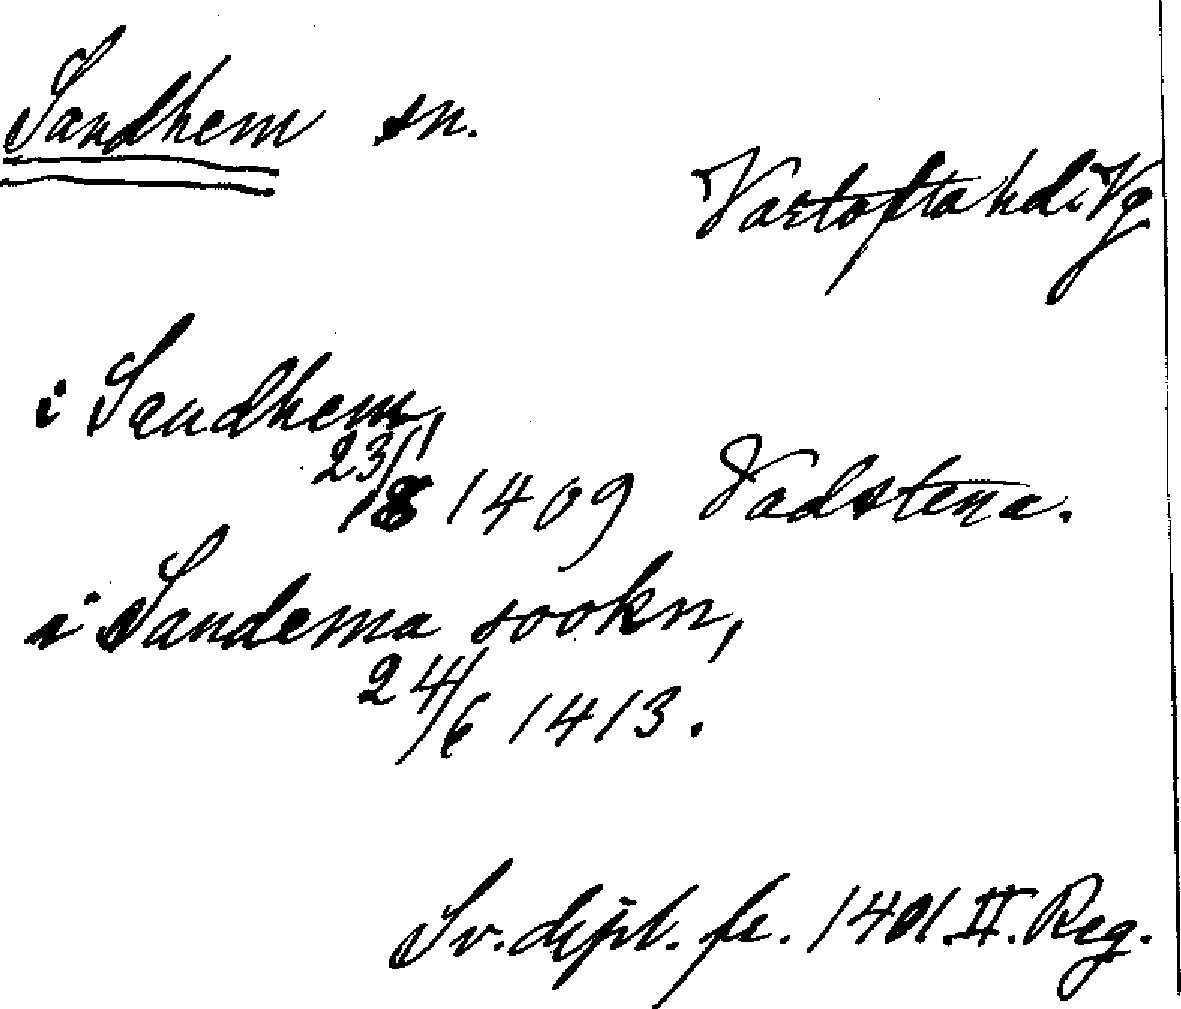 Sandhem sn.
Vartofta hd. Vg
i Sandhem,
23/8 1409 Vadstena.
i Sandema sookn,
24/6 1413.
Sv. dipl. fr. 1401. II. Reg.